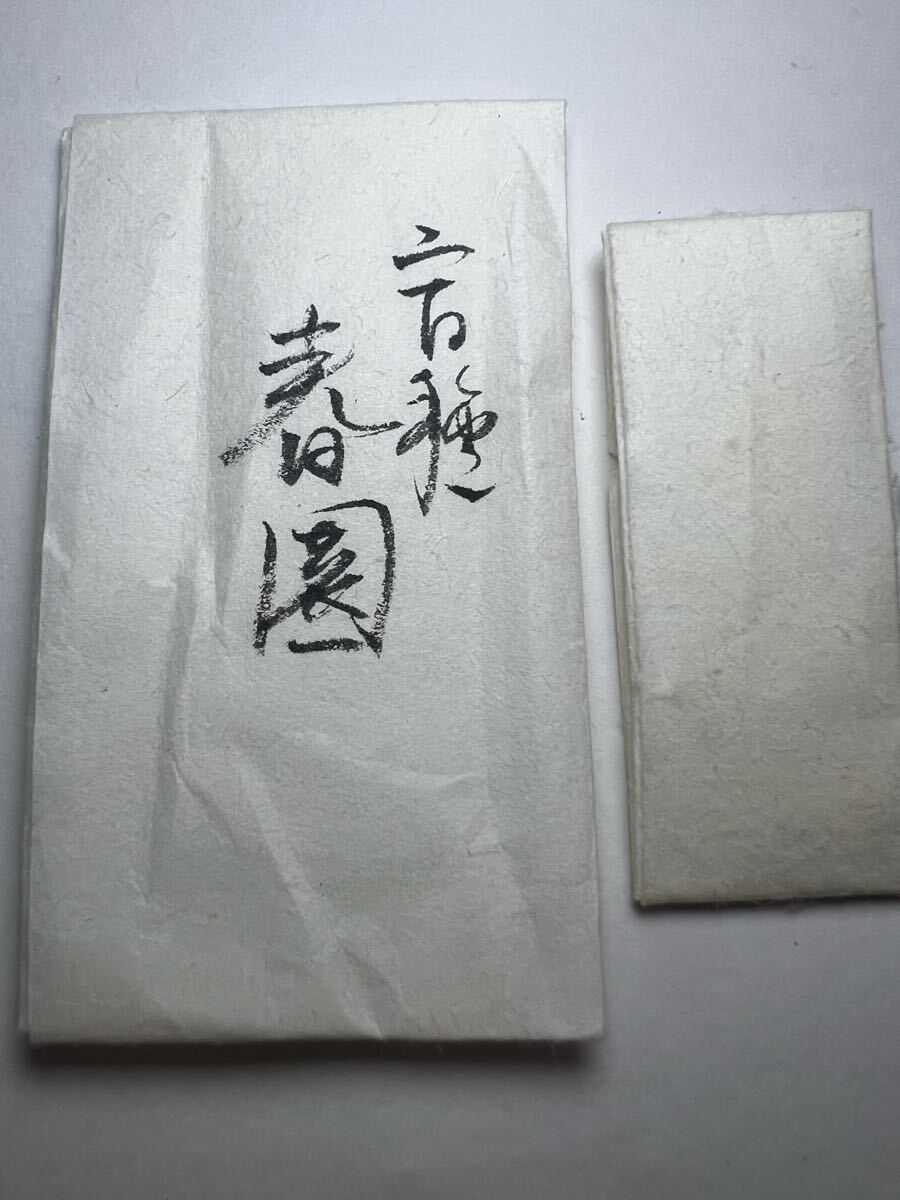 二百種
春園